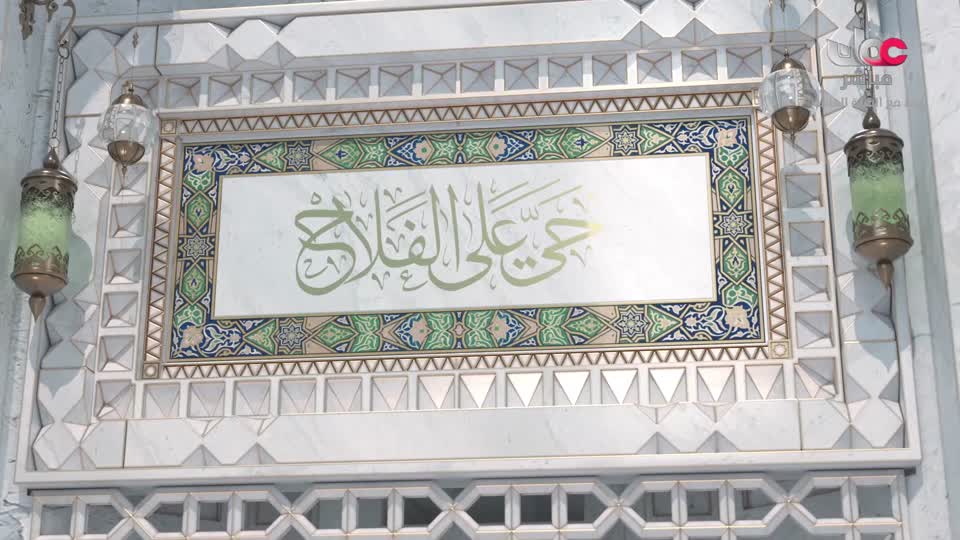 حَيَّ عَلَى الْفَلَاحْ
عمان
مباشر